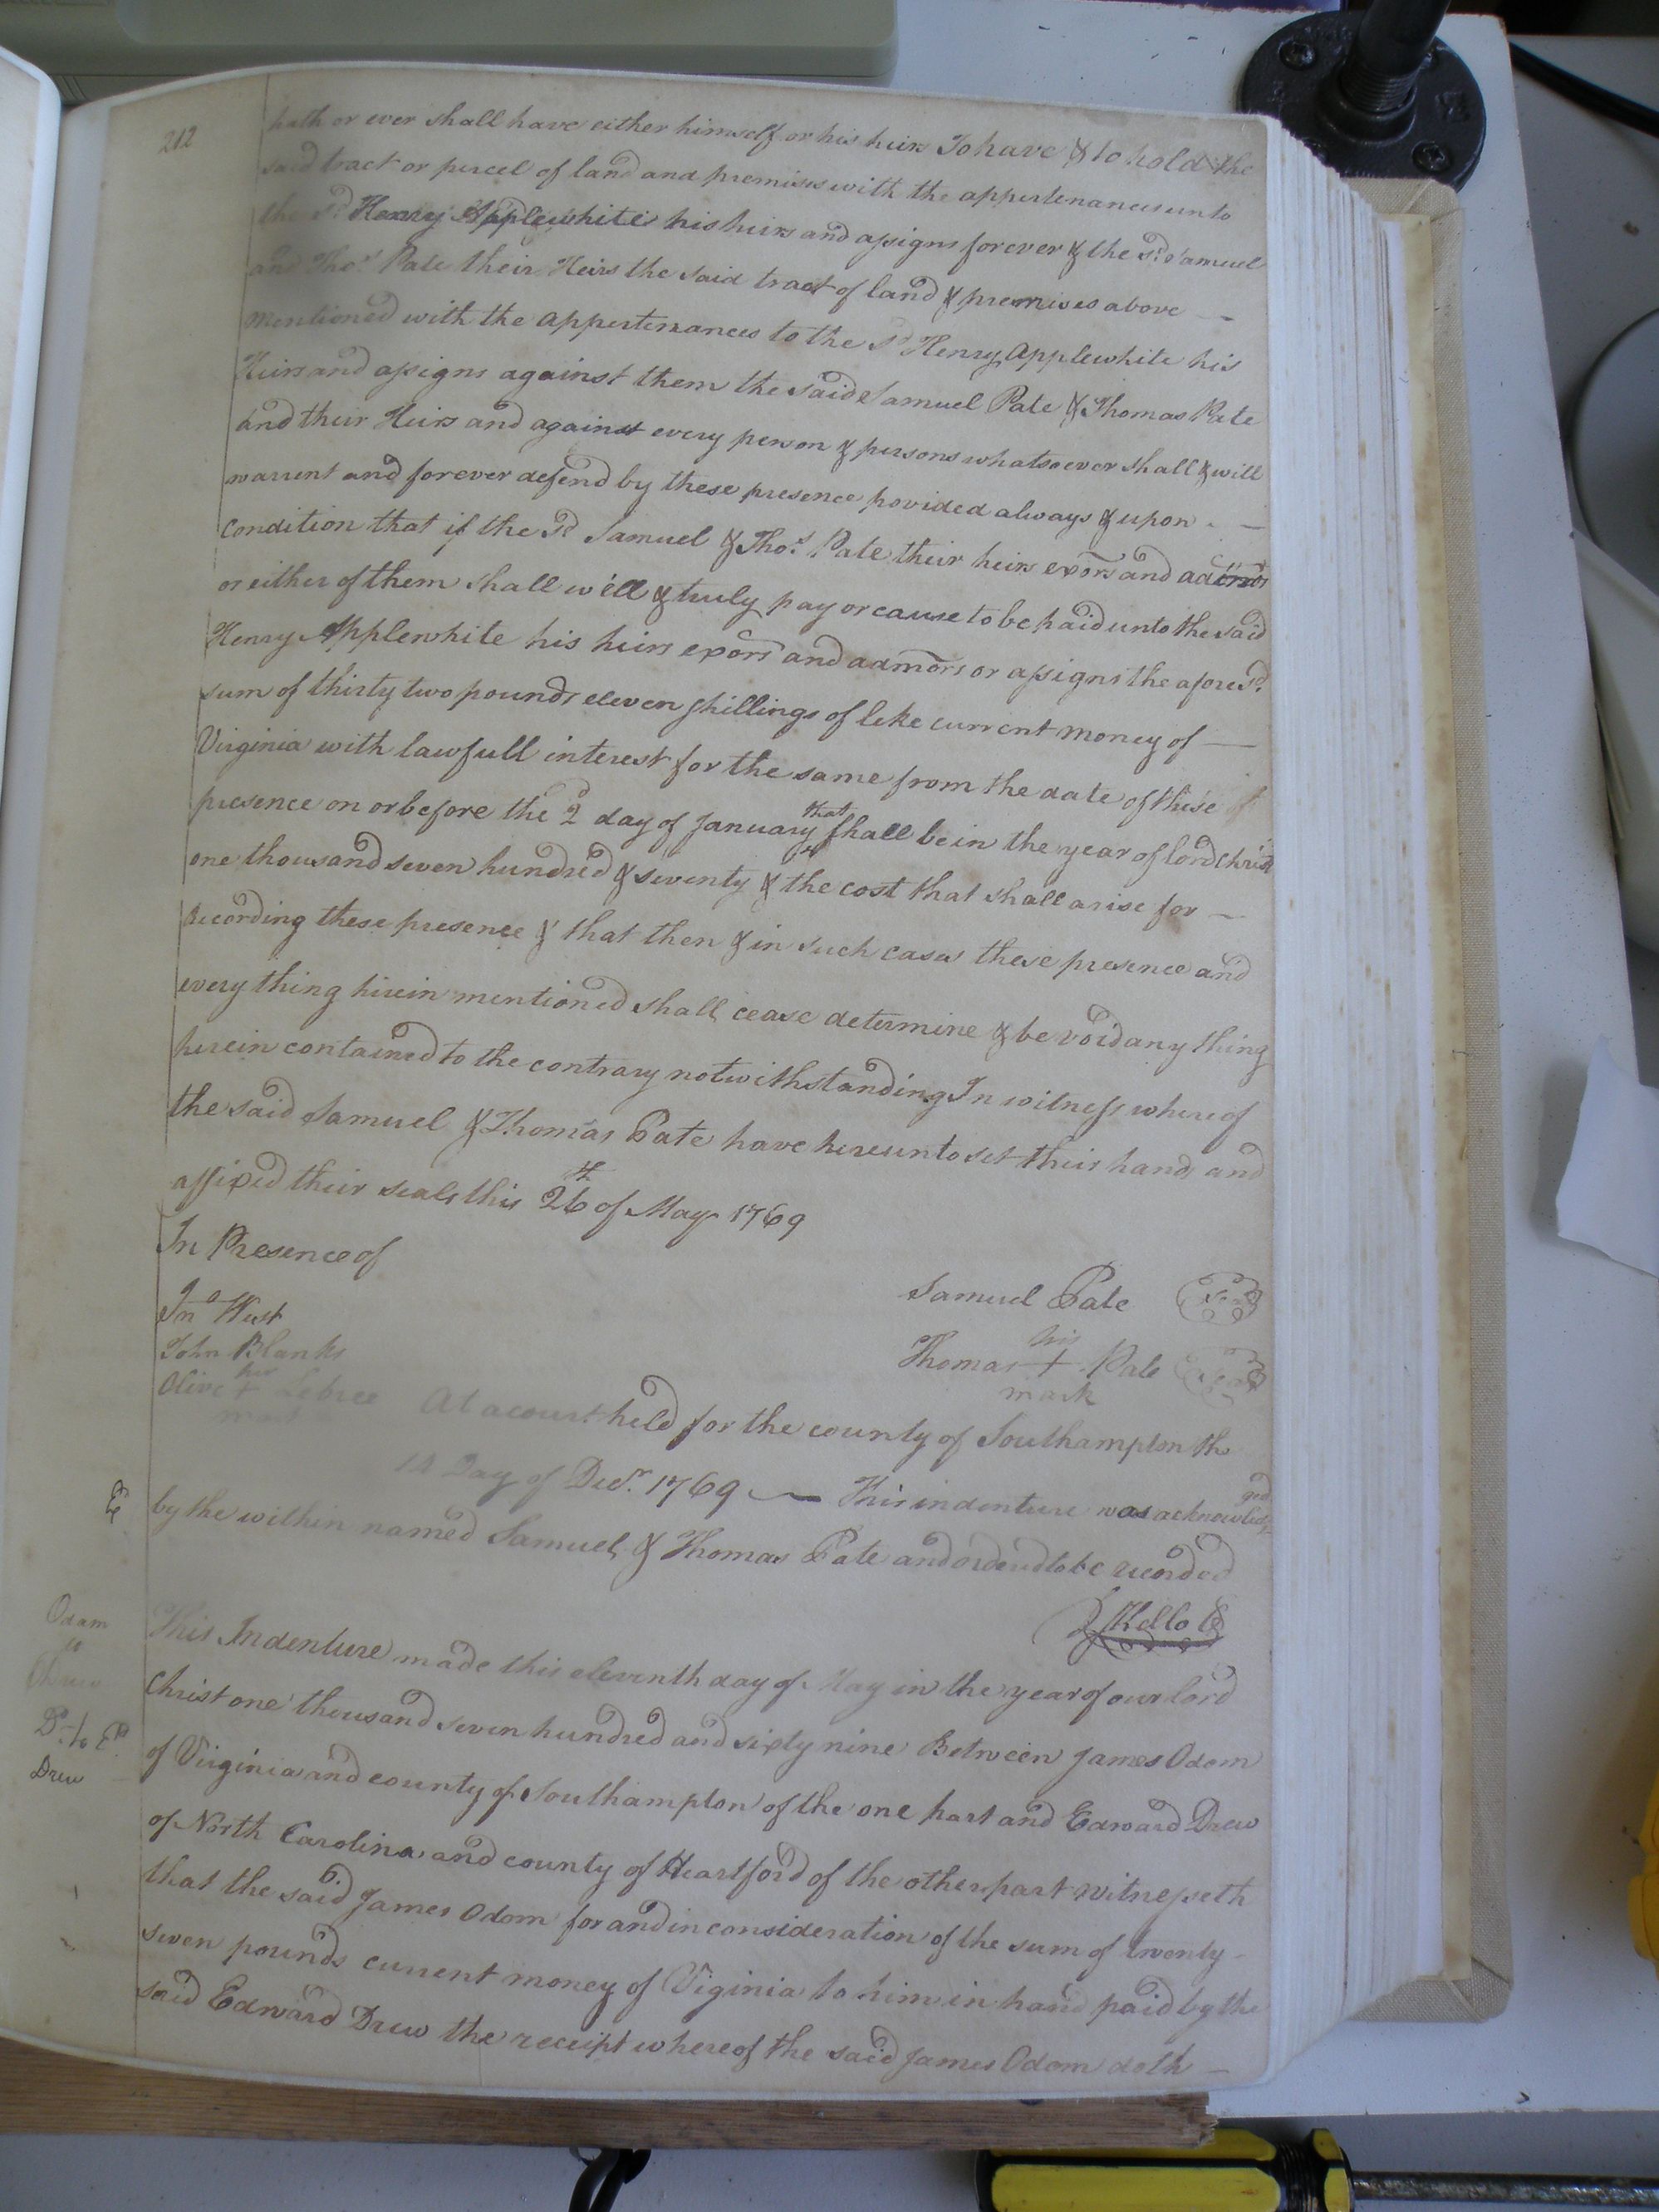 212
hath or ever shall have either himself or his heirs To have & to hold the
said tract or percel of land and premises with the appertenances unto
the sd Henry Applewhite his heirs and assigns forever & the sd Samuel
and Thos Pate their Heirs the said tract of land & premises above —
mentioned with the appertenances to the sd Henry Applewhite his
Heirs and assigns against them the said Samuel Pate & Thomas Pate
and their Heirs and against every person & persons whatsoever shall & will
warrent and forever defend by these presence povided always & upon —
condition that if the sd Samuel & Thos Pate their heirs exors and admors
or either of them shall well & truly pay or cause to be paid unto the said
Henry Applewhite his heirs exors and admors or assigns the aforesd
sum of thirty two pounds eleven shillings of leke current money of —
Virginia with lawfull interest for the same from the date of these
presence on or before the 2d day of January that shall be in the year of lord Christ
one thousand seven hundred & seventy & the cost that shall arise for —
recording these presence & that then & in such cases these presence and
every thing herein mentioned shall cease determine & be void any thing
herein contained to the contrary notwithstanding In witness whereof
the said Samuel & Thomas Pate have hereunto set their hands and
affixed their seals this 26th of May 1769
In Presence of
Jno West
Samuel Pate Seal
John Blanks
Thomas his + mark Pate Seal
Olive her + mark
At a court held for the county of Southampton the
14 Day of Decr. 1769 — This indenture was acknowledged
by the within named Samuel & Thomas Pate and orderd to be recorded
Kello C
Odam
to
Drew
This Indenture made this eleventh day of May in the year of our lord
Christ one thousand seven hundred and sixty nine Between James Odom
Dd. to Ed.
Drew
of Virginia and county of Southampton of the one part and Edward Drew
of North Carolina and county of Heartford of the other part witnesseth
that the said James Odom for and in consideration of the sum of twenty-
seven pounds current money of Viginia to him in hand paid by the
said Edward Drew the receipt whereof the said James Odom doth —